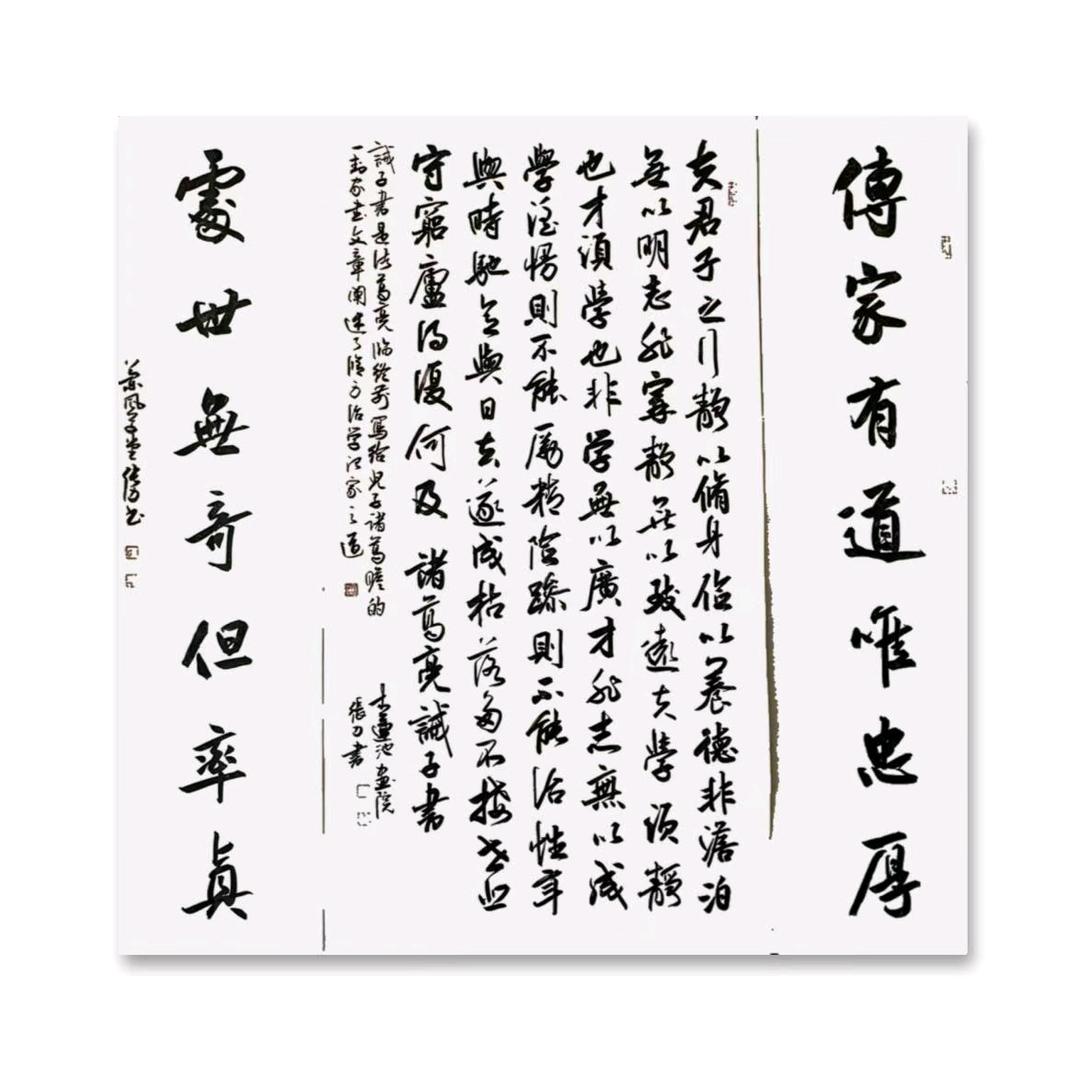 傳家有道唯忠厚
夫君子之行靜以脩身儉以養德非澹泊
無以明志非寧靜無以致遠夫學須靜
也才須學也非学無以廣才非志無以成
學淫慢則不能勵精險躁則不能治性年
與時馳意與日去遂成枯落多不接世悲
守窮廬將復何及 諸葛亮誡子書
誡子書是诸葛亮臨终前寫给兒子諸葛瞻的
一封家书文章阐述了修身治学治家之道
蓮池畫院
張刀書
處世無奇但率真